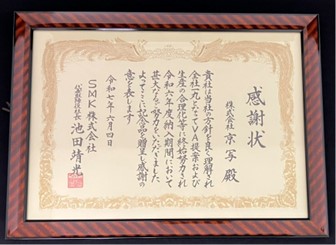 感謝状
株式会社 京写 殿
貴社は当社の方針を良く理解され
全社一丸となってVA提案および
生産の合理化等に終始努力され
令和六年度の納入期間において
甚大なるご努力をいただきました
よってここに記念品を贈呈し感謝の
意を表します
令和七年六月四日
SMK株式会社
代表取締役社長 池田靖光